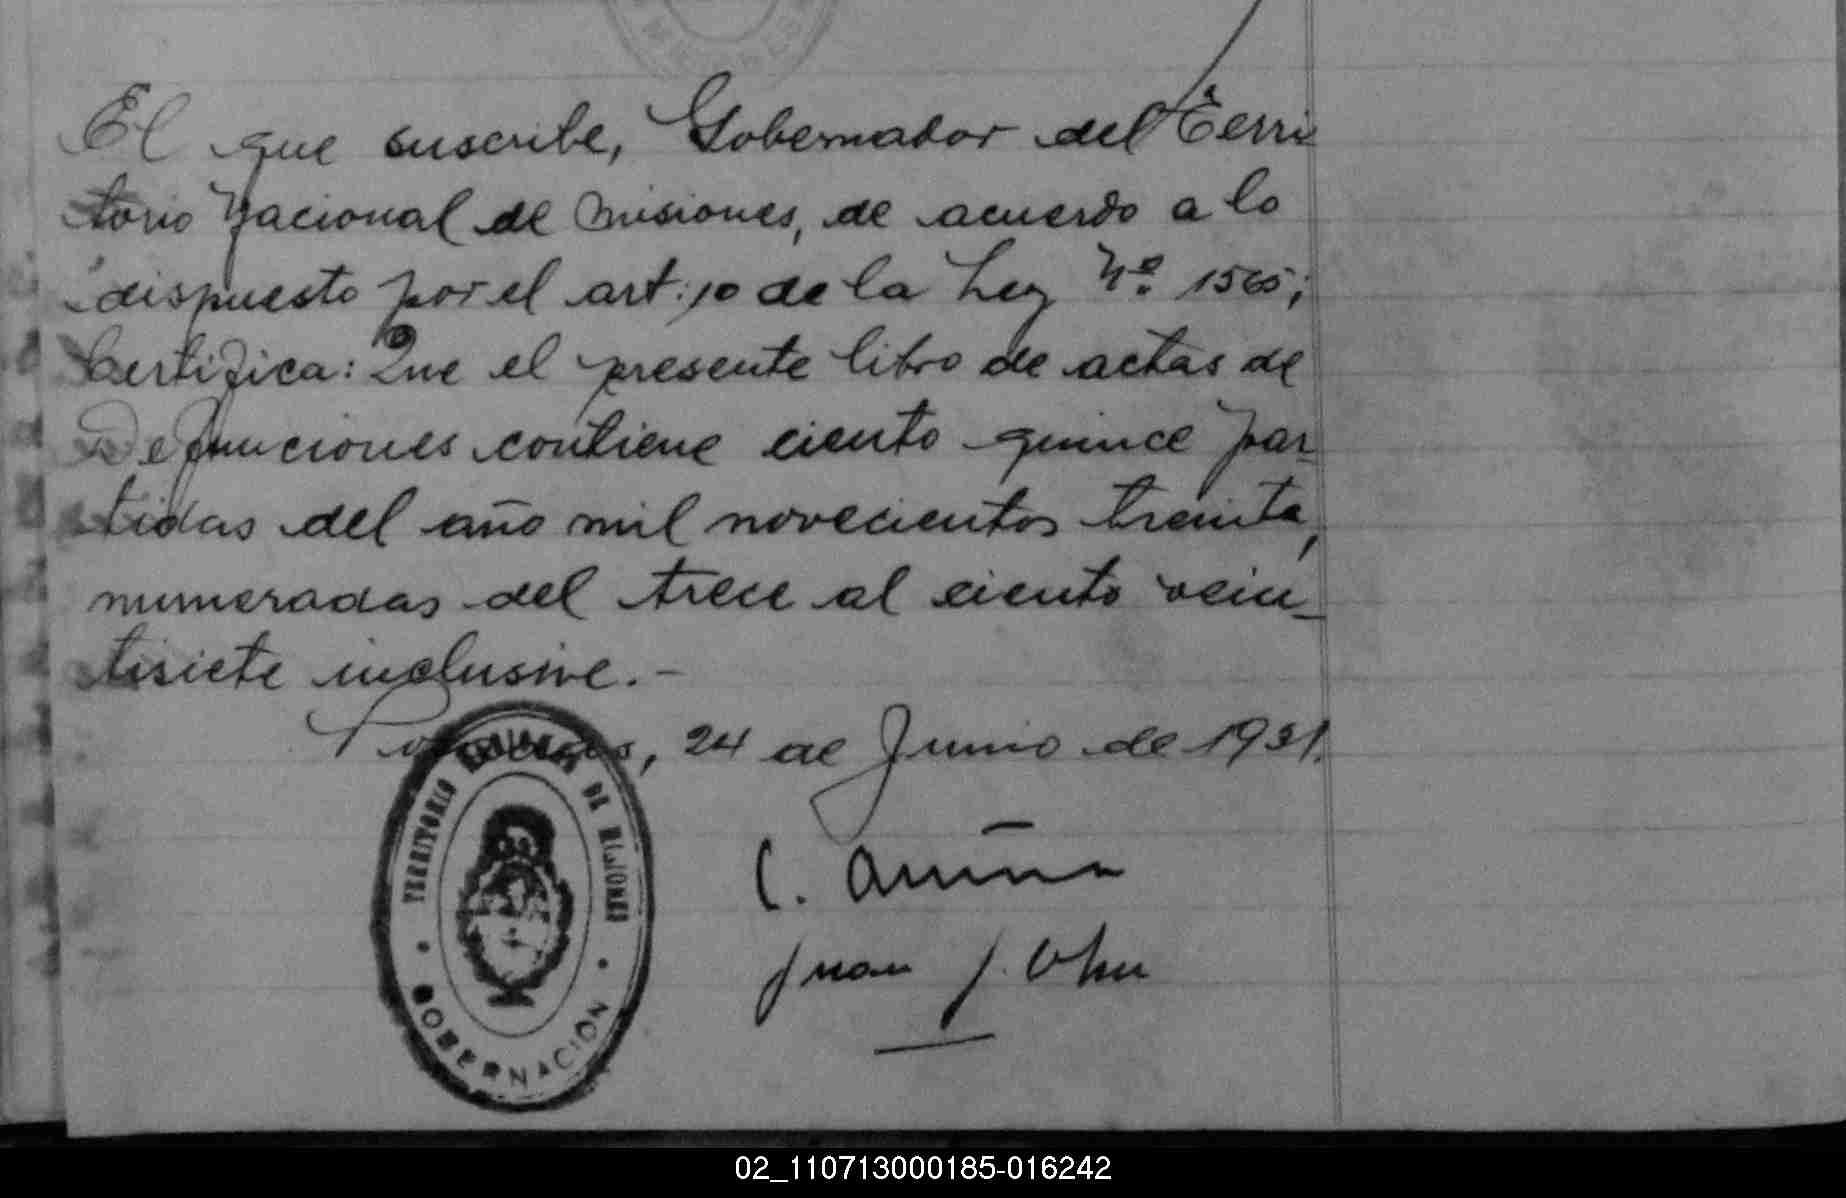 El que suscribe, Gobernador del Terri
torio Nacional de Misiones, de acuerdo a lo
dispuesto por el art: 10 de la Ley Nº 1565;
Certifica: Que el presente libro de actas de
Defunciones contiene ciento quince par-
tidas del año mil novecientos treinta,
numeradas del trece al ciento vein-
tisiete inclusive.-
Posadas, 24 de Junio de 1931.
TERRITORIO NACIONAL DE MISIONES
GOBERNACIÓN
C. Acuña
Juan J.
02_110713000185-016242